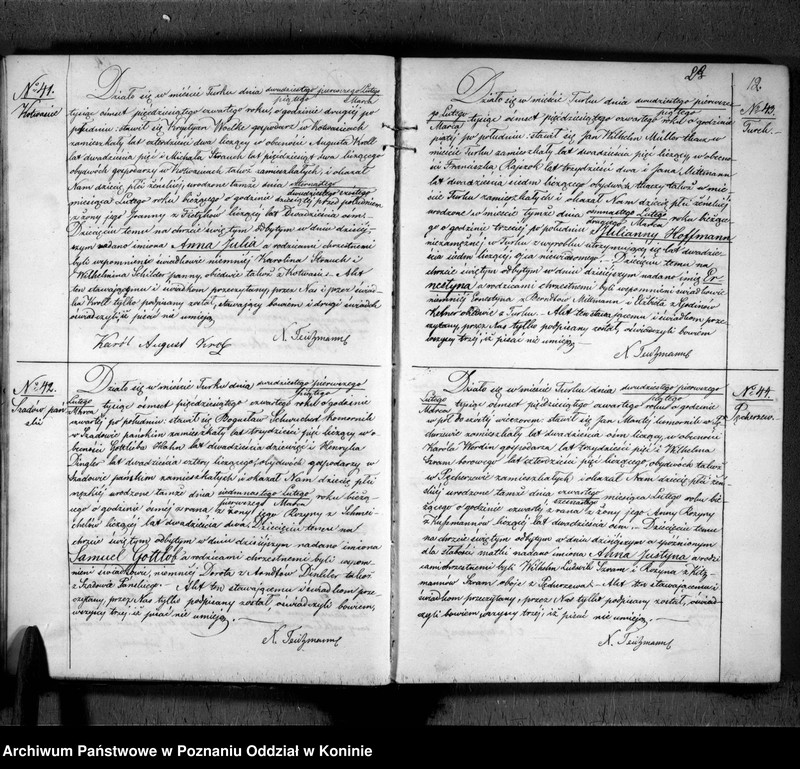 No. 41.
Kowanie
Działo się w mieście Turku dnia dwudziestego pierwszego Lutego
piątego Marca
tysiąc ośmset pięćdziesiątego czwartego roku, o godzinie drugiej po
południu: stawił się Krystyan Woelke gospodarz w
zamieszkały lat czterdzieści dwa liczący w obecności Augusta Kroll
lat dwadzieścia pięć i Michała Strauch lat pięćdziesiąt dwa liczącego
obydwóch gospodarzy w także zamieszkałych i okazał
Nam dziecię płci żeńskiej, urodzone tamże dnia
dwudziestego szóstego
miesiąca Lutego roku bieżącego o godzinie dziesiątej przed południem
z żony jego Joanny z liczącej lat Dwadzieścia ośm.
Dziecięciu temu na chrzcie świętym odbytym w dniu dzisiej-
szym nadano imiona Anna Julia a rodzicami chrzestnemi
byli wspomnieni świadkowie niemniej Karolina Strauch i
Wilhelmina Schilder panny, obiedwie także z Akt
ten stawającemu i świadkom przeczytany, przez Nas i przez świad-
ka Kroll tylko podpisany został, stawający bowiem i drugi świadek
oświadczyli, iż pisać nie umieją.
Karol August Krol
N. Teitzmann
No. 42.
Szadów pań-
ski
Działo się w mieście Turku dnia dwudziestego pierwszego
piątego
Lutego
Marca tysiąc ośmset pięćdziesiątego czwartego roku o godzinie
czwartej po południu: stawił się Bogusław komornik
w Szadowie pańskim zamieszkały lat trzydzieści pięć liczący w o-
becności Gottlieba Hahn lat dwadzieścia dziewięć i Henryka
Dingler lat dwadzieścia cztery liczącego, obydwóch gospodarzy w
Szadowie pańskim zamieszkałych i okazał Nam dziecię płci
męzkiej urodzone tamże dnia siedmnastego Lutego roku bieżą-
pierwszego Marca
cego o godzinie ósmej z rana z żony jego Rozyny z Schmei-
chelów liczącej lat dwadzieścia dwa. Dziecięciu temu na
chrzcie świętym odbytym w dniu dzisiejszym nadano imiona
Samuel Gottlob a rodzicami chrzestnemi byli wspom-
nieni świadkowie, niemniej Dorota z Arndtów Dinkler także
z Szadowa Pańskiego. Akt ten stawającemu i świadkom prze-
czytany, przez Nas tylko podpisany został oświadczyli bowiem,
wszyscy trzej, iż pisać nie umieją.
N. Teitzmann
28
12.
No. 43.
Turek.
Działo się w mieście Turku dnia dwudziestego pierwszego
piątego
go Lutego
Marca tysiąc ośmset pięćdziesiątego czwartego roku o godzinie
piątej po południu: stawił się Jan Wilhelm Müller tkacz w
mieście Turku zamieszkały lat dwadzieścia pięć liczący w obecno-
ści Franciszka Rajzok lat trzydzieści dwa i Jana Mittmann
lat dwadzieścia siedm liczącego obydwóch tkaczy także w mie-
ście Turku zamieszkałych i okazał Nam dziecię płci żeńskiej
urodzone w mieście tymże dnia ośmnastego Lutego roku bieżące-
drugiego Marca
go o godzinie trzeciej po południu z Julianny Hoffmann
niezamężnej w Turku z wyrobku utrzymującej się lat dwadzie-
ścia siedm liczącej, ojca niewiadomego. Dziecięciu temu na
chrzcie świętym odbytym w dniu dzisiejszym nadano imię Er-
nestyna a rodzicami chrzestnemi byli wspomnieni świadkowie
niemniej Ernestyna z Mittmann i Elżbieta z
obiedwie z Turku. Akt ten stawającemu i świadkom prze-
czytany, przez Nas tylko podpisany został, oświadczyli bowiem
wszyscy trzej, iż pisać nie umieją.
N. Teitzmann
No. 44.
Działo się w mieście Turku dnia dwudziestego pierwszego
piątego
Lutego
Marca tysiąc ośmset pięćdziesiątego czwartego roku o godzinie
w pół do szóstej wieczorem stawił się Jan komornik w
zamieszkały lat dwadzieścia ośm liczący, w obecności
Karola Werdin gospodarza lat trzydzieści pięć i Wilhelma
Szram borowego lat czterdzieści pięć liczącego, obydwóch także
w zamieszkałych i okazał Nam dziecię płci żeń-
skiej urodzone tamże dnia czwartego miesiąca Lutego roku bie-
szesnastego
żącego o godzinie czwartej z rana z żony jego Anny Rozyny
z liczącej lat dwadzieścia ośm. Dziecięciu temu
na chrzcie świętym odbytym w dniu dzisiejszym a spóźnionym
dla słabości matki nadano imiona Anna Justyna a rodzi-
cami chrzestnemi byli Wilhelm Ludwik Szram i Rozyna z
Szram oboje z Akt ten stawającemu i
świadkom przeczytany, przez Nas tylko podpisany został, oświad-
czyli bowiem, wszyscy trzej, iż pisać nie umieją.
N. Teitzmann
Archiwum Państwowe w Poznaniu Oddział w Koninie